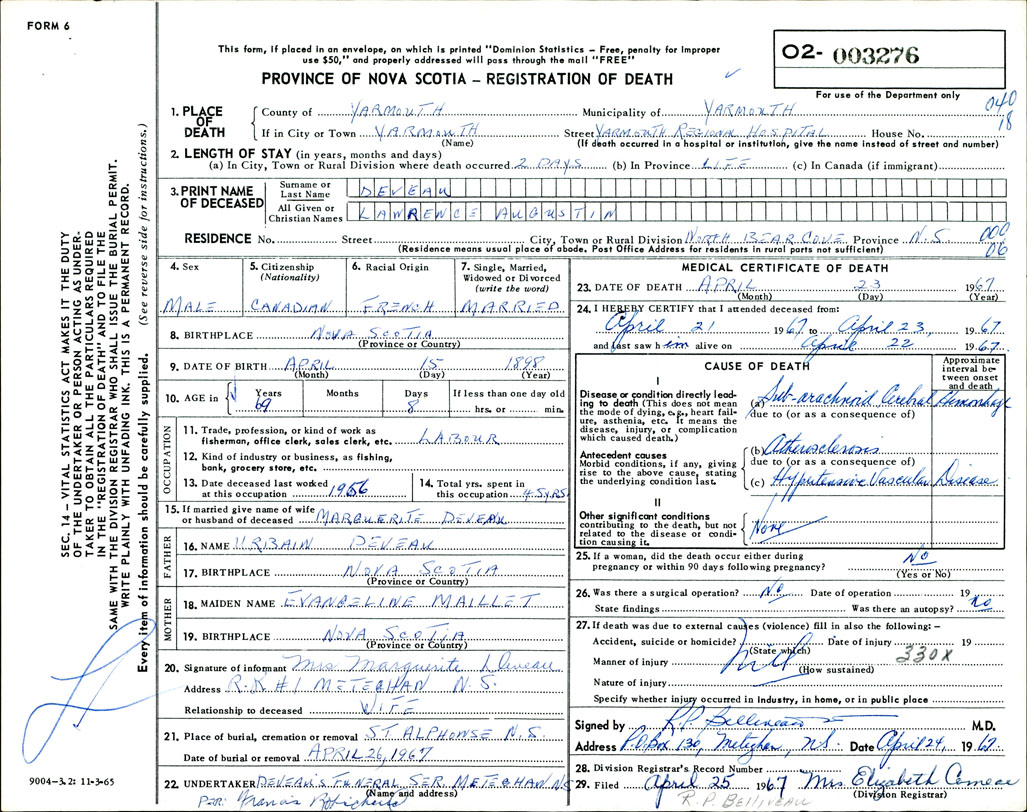 FORM 6
This form, if placed in an envelope, on which is printed "Dominion Statistics – Free, penalty for improper
use $50," and properly addressed will pass through the mail "FREE"
PROVINCE OF NOVA SCOTIA – REGISTRATION OF DEATH
02- 003276
For use of the Department only
040
18
1. PLACE OF DEATH
County of YARMOUTH Municipality of YARMOUTH
If in City or Town YARMOUTH Street YARMOUTH REGIONAL HOSPITAL House No.
(Name) (If death occurred in a hospital or institution, give the name instead of street and number)
2. LENGTH OF STAY (in years, months and days)
(a) In City, Town or Rural Division where death occurred 2 DAYS (b) In Province LIFE (c) In Canada (if immigrant)
3. PRINT NAME OF DECEASED
Surname or Last Name DEVEAU
All Given or Christian Names LAWRENCE AUGUSTIN
RESIDENCE No. Street City, Town or Rural Division NORTH BEAR COVE Province N.S.
000
06
(Residence means usual place of abode. Post Office Address for residents in rural parts not sufficient)
4. Sex MALE
5. Citizenship (Nationality) CANADIAN
6. Racial Origin FRENCH
7. Single, Married, Widowed or Divorced (write the word) MARRIED
8. BIRTHPLACE NOVA SCOTIA
(Province or Country)
9. DATE OF BIRTH APRIL 15 1898
(Month) (Day) (Year)
10. AGE in Years 69 Months Days 8 If less than one day old hrs. or min.
OCCUPATION
11. Trade, profession, or kind of work as
fisherman, office clerk, sales clerk, etc. LABOUR
12. Kind of industry or business, as fishing,
bank, grocery store, etc.
13. Date deceased last worked
at this occupation 1956
14. Total yrs. spent in
this occupation 45 YRS.
15. If married give name of wife
or husband of deceased MARGUERITE DEVEAU
FATHER
16. NAME URBAIN DEVEAU
17. BIRTHPLACE NOVA SCOTIA
(Province or Country)
MOTHER
18. MAIDEN NAME EVANGELINE MAILLET
19. BIRTHPLACE NOVA SCOTIA
(Province or Country)
20. Signature of informant Mrs Marguerite Deveau
Address R.R#1 METEGHAN N.S.
Relationship to deceased WIFE
21. Place of burial, cremation or removal ST ALPHONSE N.S.
Date of burial or removal APRIL 26, 1967
22. UNDERTAKER DEVEAU'S FUNERAL SER. METEGHAN NS
(Name and address)
Per: Francis
MEDICAL CERTIFICATE OF DEATH
23. DATE OF DEATH APRIL 23 1967
(Month) (Day) (Year)
24. I HEREBY CERTIFY that I attended deceased from:
April 21 1967 to April 23, 1967
and last saw him alive on April 22 1967
CAUSE OF DEATH
Approximate interval between onset and death
I
Disease or condition directly leading to death (This does not mean
the mode of dying, e.g., heart failure, asthenia, etc. It means the
disease, injury, or complication
which caused death.)
(a) Sub-arachnoid Cerebral Hemorrhage
due to (or as a consequence of)
Antecedent causes
Morbid conditions, if any, giving
rise to the above cause, stating
the underlying condition last.
(b) Atherosclerosis
due to (or as a consequence of)
(c) Hypertensive Vascular Disease
II
Other significant conditions
contributing to the death, but not
related to the disease or condition causing it.
None
25. If a woman, did the death occur either during
pregnancy or within 90 days following pregnancy? No
(Yes or No)
26. Was there a surgical operation? No Date of operation 19
State findings Was there an autopsy? No
27. If death was due to external causes (violence) fill in also the following: –
Accident, suicide or homicide? Date of injury 19
(State which)
330X
Manner of injury Nil
(How sustained)
Nature of injury
Specify whether injury occurred in industry, in home, or in public place
Signed by R.P. Belliveau M.D.
Address P.O Box 130, Meteghan, NS Date April 24, 1967
28. Division Registrar's Record Number
29. Filed April 25 1967 Mrs Elizabeth Comeau
(Division Registrar)
R.P. BELLIVEAU
SEC. 14 – VITAL STATISTICS ACT MAKES IT THE DUTY
OF THE UNDERTAKER OR PERSON ACTING AS UNDERTAKER TO OBTAIN ALL THE PARTICULARS REQUIRED
IN THE "REGISTRATION OF DEATH" AND TO FILE THE
SAME WITH THE DIVISION REGISTRAR WHO SHALL ISSUE THE BURIAL PERMIT.
WRITE PLAINLY WITH UNFADING INK. THIS IS A PERMANENT RECORD.
Every item of information should be carefully supplied. (See reverse side for instructions.)
9004-3.2: 11-3-65